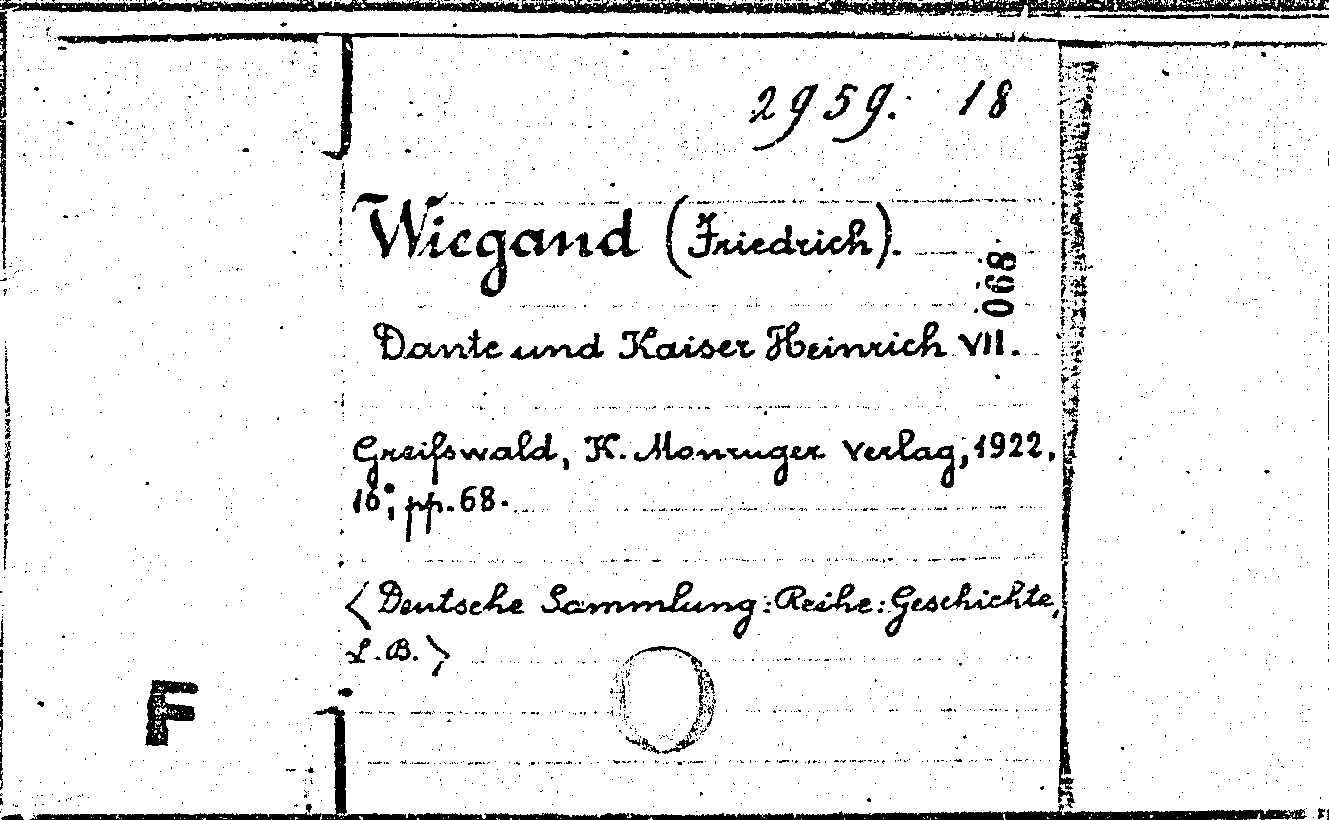 2959. 18
Wiegand (Friedrich).
068
Dante und Kaiser Heinrich VII.
Greifswald, K. Monruger Verlag, 1922.
16°; pp. 68.
< Deutsche Sammlung: Reihe: Geschichte,
L.B. >
F